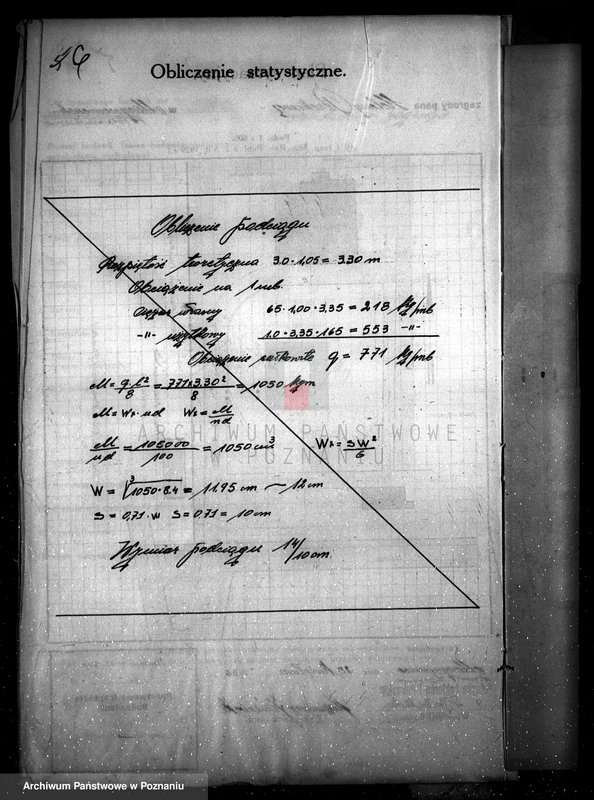 26
Obliczenie statystyczne.
Obliczenie podciągu
Rozpiętość teoretyczna 3.0·1,05 = 3.30 m
Obciążenie na 1 mb.
ciężar własny 65·1,00·3,35 = 218 kg/mb
-"- użytkowy 1.0·3.35·165 = 553 -"-
Obciążenie całkowite q = 771 kg/mb
M = q·l²/8 = 771×3.30²/8 = 1050 kgm
M = Wx·nd Wx = M/nd
M/nd = 105000/100 = 1050 cm³ Wx = SW²/6
W = ∛1050·8.4 = 11.95 cm ~ 12 cm
S = 0,71·W S = 0,71 = 10 cm
Wymiar podciągu 14/10 cm.
ARCHIWUM PAŃSTWOWE
W POZNANIU
Archiwum Państwowe w Poznaniu